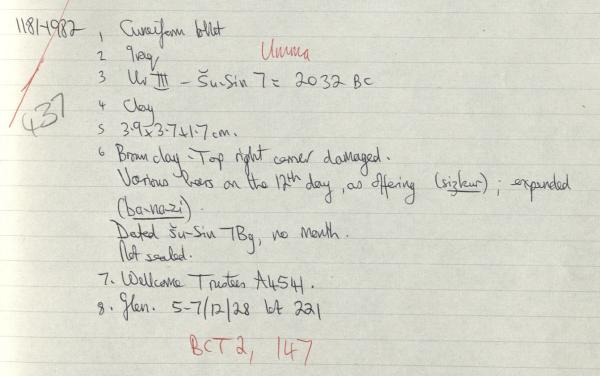 1181-1982
1 Cuneiform tablet
2 Iraq Umma
3 Ur III - Šu-Sin 7 = 2032 BC
437
4 Clay
5 3.9 x 3.7 x 1.7 cm.
6 Brown clay. Top right corner damaged.
Various beers on the 12th day, as offering (sizkur); expended
(ba-na-zi).
Dated Šu-Sin 7 Bg, no month.
Not sealed.
7. Wellcome Trustees A4541.
8. Glen. 5-7/12/28 lot 221
BCT 2, 147